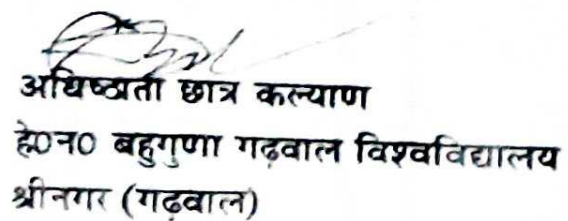 अधिष्ठाता छात्र कल्याण
हे०न० बहुगुणा गढ़वाल विश्वविद्यालय
श्रीनगर (गढ़वाल)